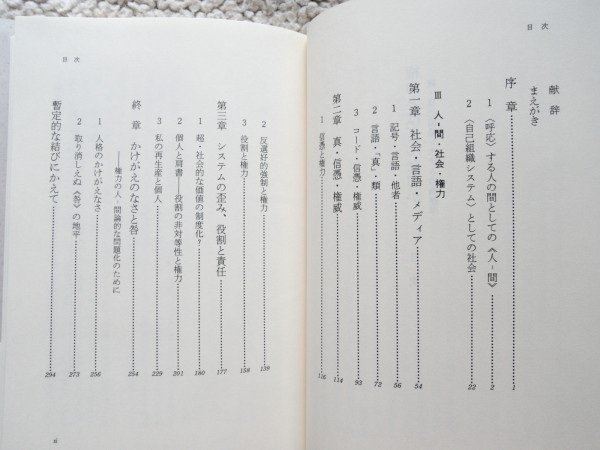 目次
献辞
まえがき
序章 1
1 〈呼応〉する人の間としての《人-間》 2
2 〈自己組織システム〉としての社会 22
Ⅲ 人-間・社会・権力
第一章 社会・言語・メディア 54
1 記号・言語・他者 56
2 言語・「真」・類 72
3 コード・信憑・権威 93
第二章 真・信憑・権威 114
1 信憑と権力 116
目次
2 反選好的強制と権力 139
3 役割と権力 158
第三章 システムの歪み、役割と責任 177
1 超・社会的な価値の制度化? 180
2 個人と肩書――役割の非対等性と権力 201
3 私の再生産と個人 229
終章 かけがえのなさと咎 254
――権力の人-間論的な問題化のために
1 人格のかけがえなさ 256
2 取り消しえぬ《咎》の地平 273
暫定的な結びにかえて 294